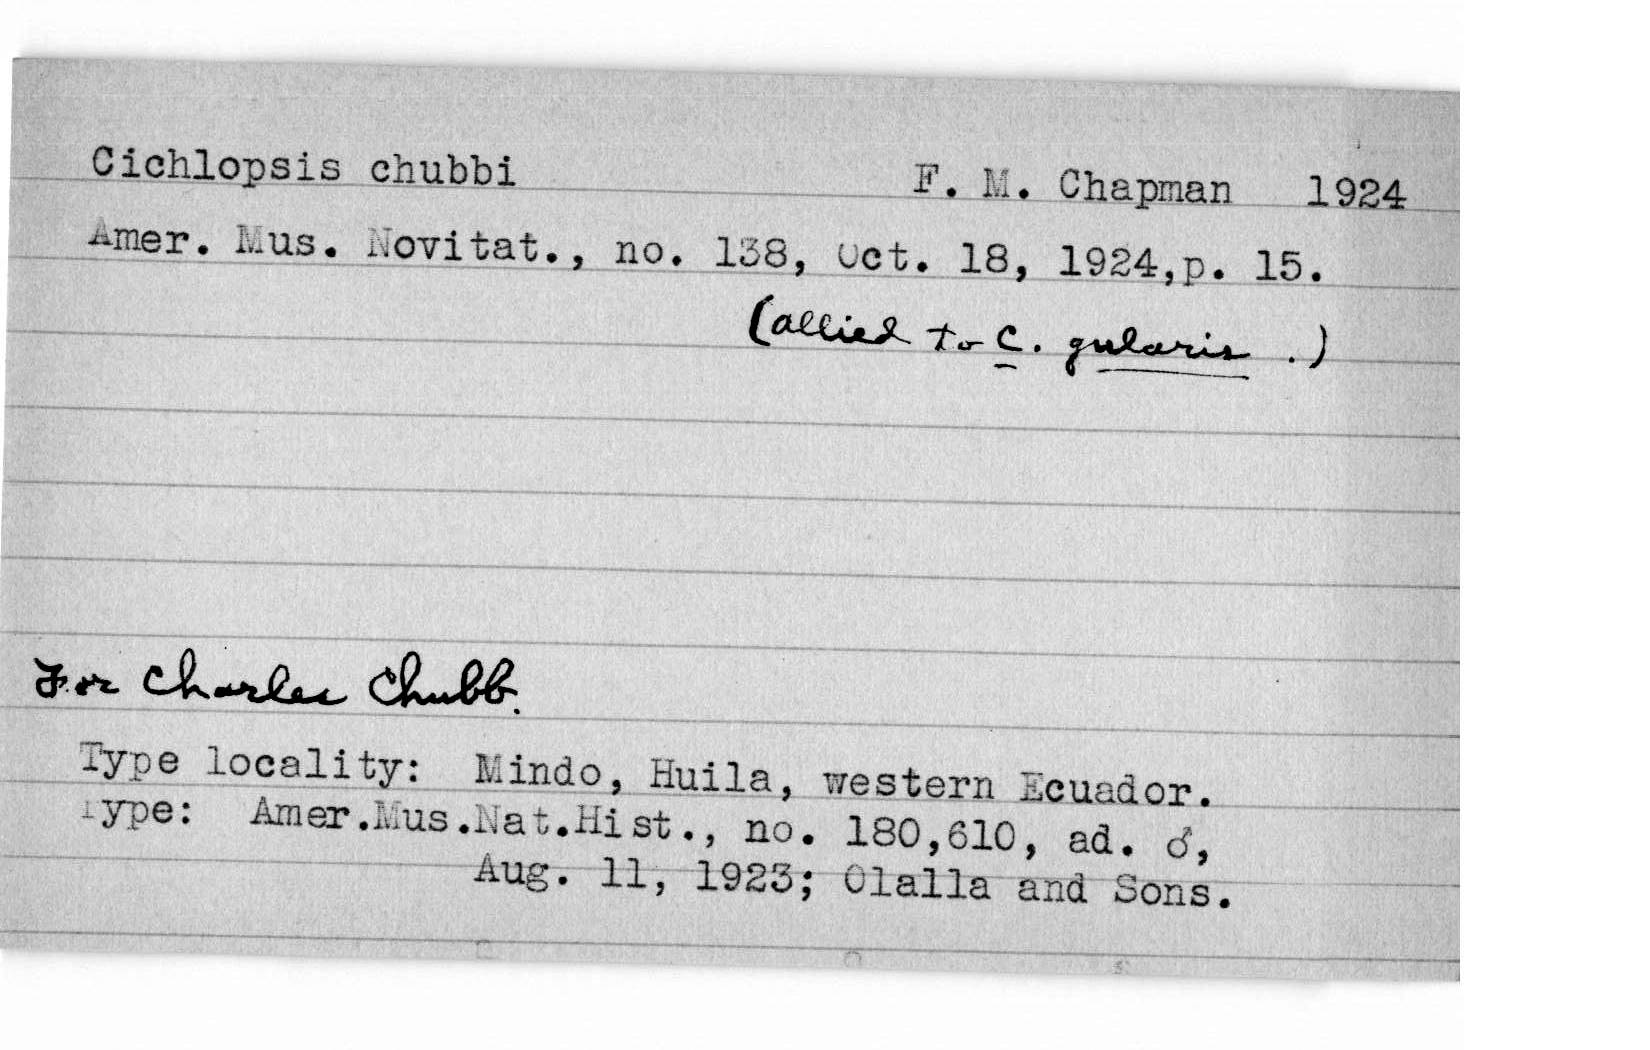 Cichlopsis chubbi F. M. Chapman 1924
Amer. Mus. Novitat., no. 138, Oct. 18, 1924,p. 15.
(allied to C. gularis .)
For Charles Chubb.
Type locality: Mindo, Huila, western Ecuador.
Type: Amer.Mus.Nat.Hist., no. 180,610, ad. ♂,
Aug. 11, 1923; Olalla and Sons.